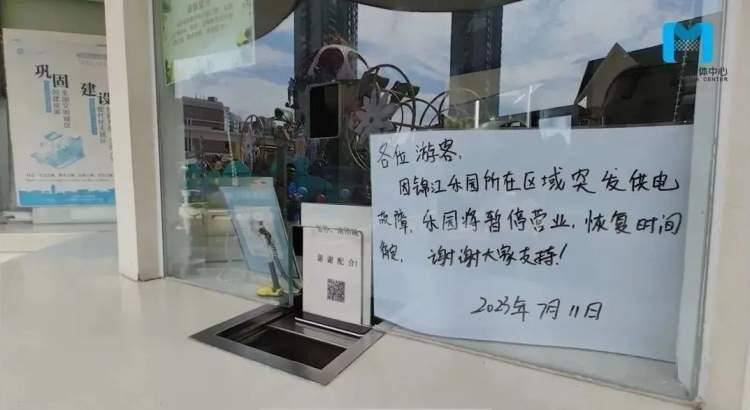 各位游客:
因锦江乐园所在区域突发供电
故障,乐园将暂停营业,恢复时间
待定, 谢谢大家支持!
2023年7月11日
谢谢配合!
巩固
建设
体中心
CENTER